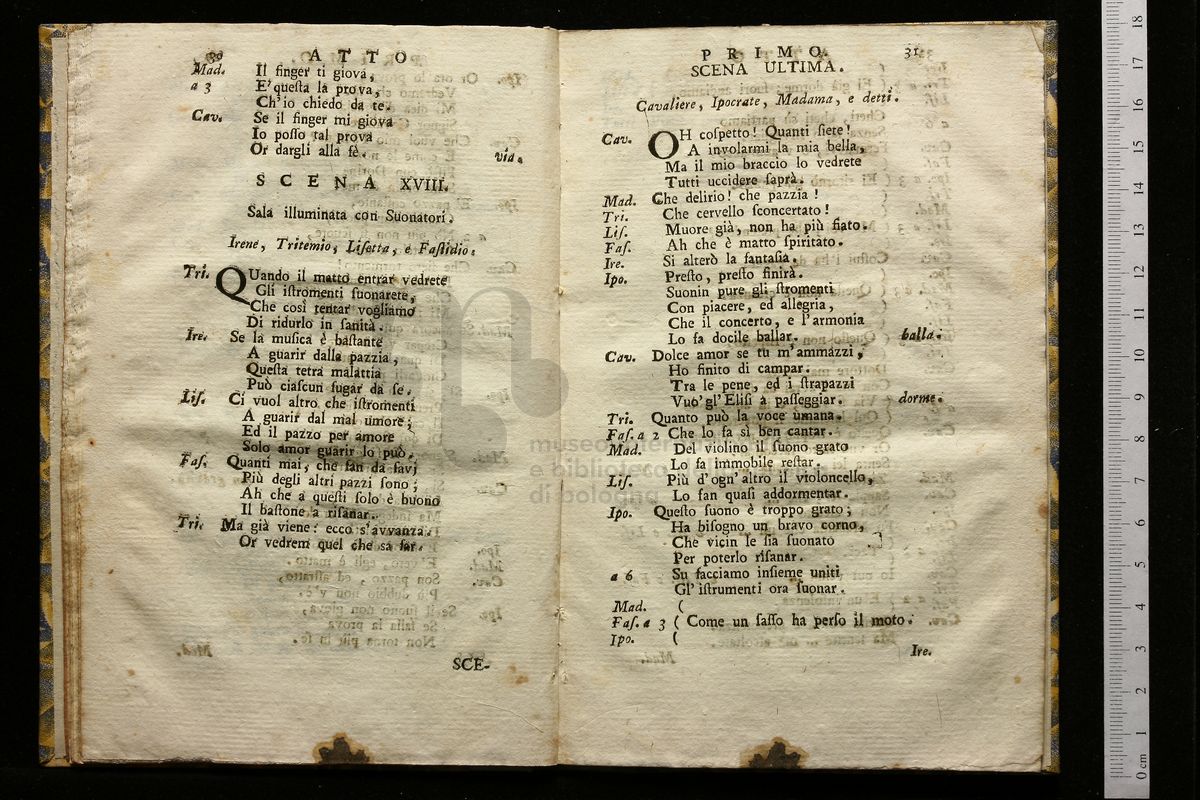 30 ATTO
Mad. Il finger ti giova,
a 3 E' questa la prova,
Ch'io chiedo da te.
Cav. Se il finger mi giova
Io posso tal prova
Or dargli alla fè. via.
SCENA XVIII.
Sala illuminata con Suonatori.
Irene, Tritemio, Lisetta, e Fastidio.
Tri. QUando il matto entrar vedrete
Gli istromenti suonarete,
Che così tentar vogliamo
Di ridurlo in sanità.
Ire. Se la musica è bastante
A guarir dalla pazzia,
Questa tetra malattia
Può ciascun fugar da se.
Lis. Ci vuol altro che istromenti
A guarir dal mal umore;
Ed il pazzo per amore
Solo amor guarir lo può.
Fas. Quanti mai, che fan da savj
Più degli altri pazzi sono;
Ah che a questi solo è buono
Il bastone a risanar.
Tri. Ma già viene: ecco s'avvanza.
Or vedrem quel che sa far.
SCE-
PRIMO. 31
SCENA ULTIMA.
Cavaliere, Ipocrate, Madama, e detti.
Cav. OH cospetto! Quanti siete!
A involarmi la mia bella,
Ma il mio braccio lo vedrete
Tutti uccidere saprà.
Mad. Che delirio! che pazzia!
Tri. Che cervello sconcertato!
Lis. Muore già, non ha più fiato.
Fas. Ah che è matto spiritato.
Ire. Si alterò la fantasia.
Ipo. Presto, presto finirà.
Suonin pure gli stromenti
Con piacere, ed allegria,
Che il concerto, e l'armonia
Lo fa docile ballar. balla.
Cav. Dolce amor se tu m'ammazzi,
Ho finito di campar.
Tra le pene, ed i strapazzi
Vuò' gl'Elisi a passeggiar. dorme.
Tri. Quanto può la voce umana.
Fas. a 2 Che lo fa sì ben cantar.
Mad. Del violino il suono grato
Lo fa immobile restar.
Lis. Più d'ogn'altro il violoncello,
Lo fan quasi addormentar.
Ipo. Questo suono è troppo grato;
Ha bisogno un bravo corno,
Che vicin le sia suonato
Per poterlo risanar.
a 6 Su facciamo insieme uniti
Gl' istrumenti ora suonar.
Mad. (
Fas. a 3 ( Come un sasso ha perso il moto.
Ipo. (
Ire.